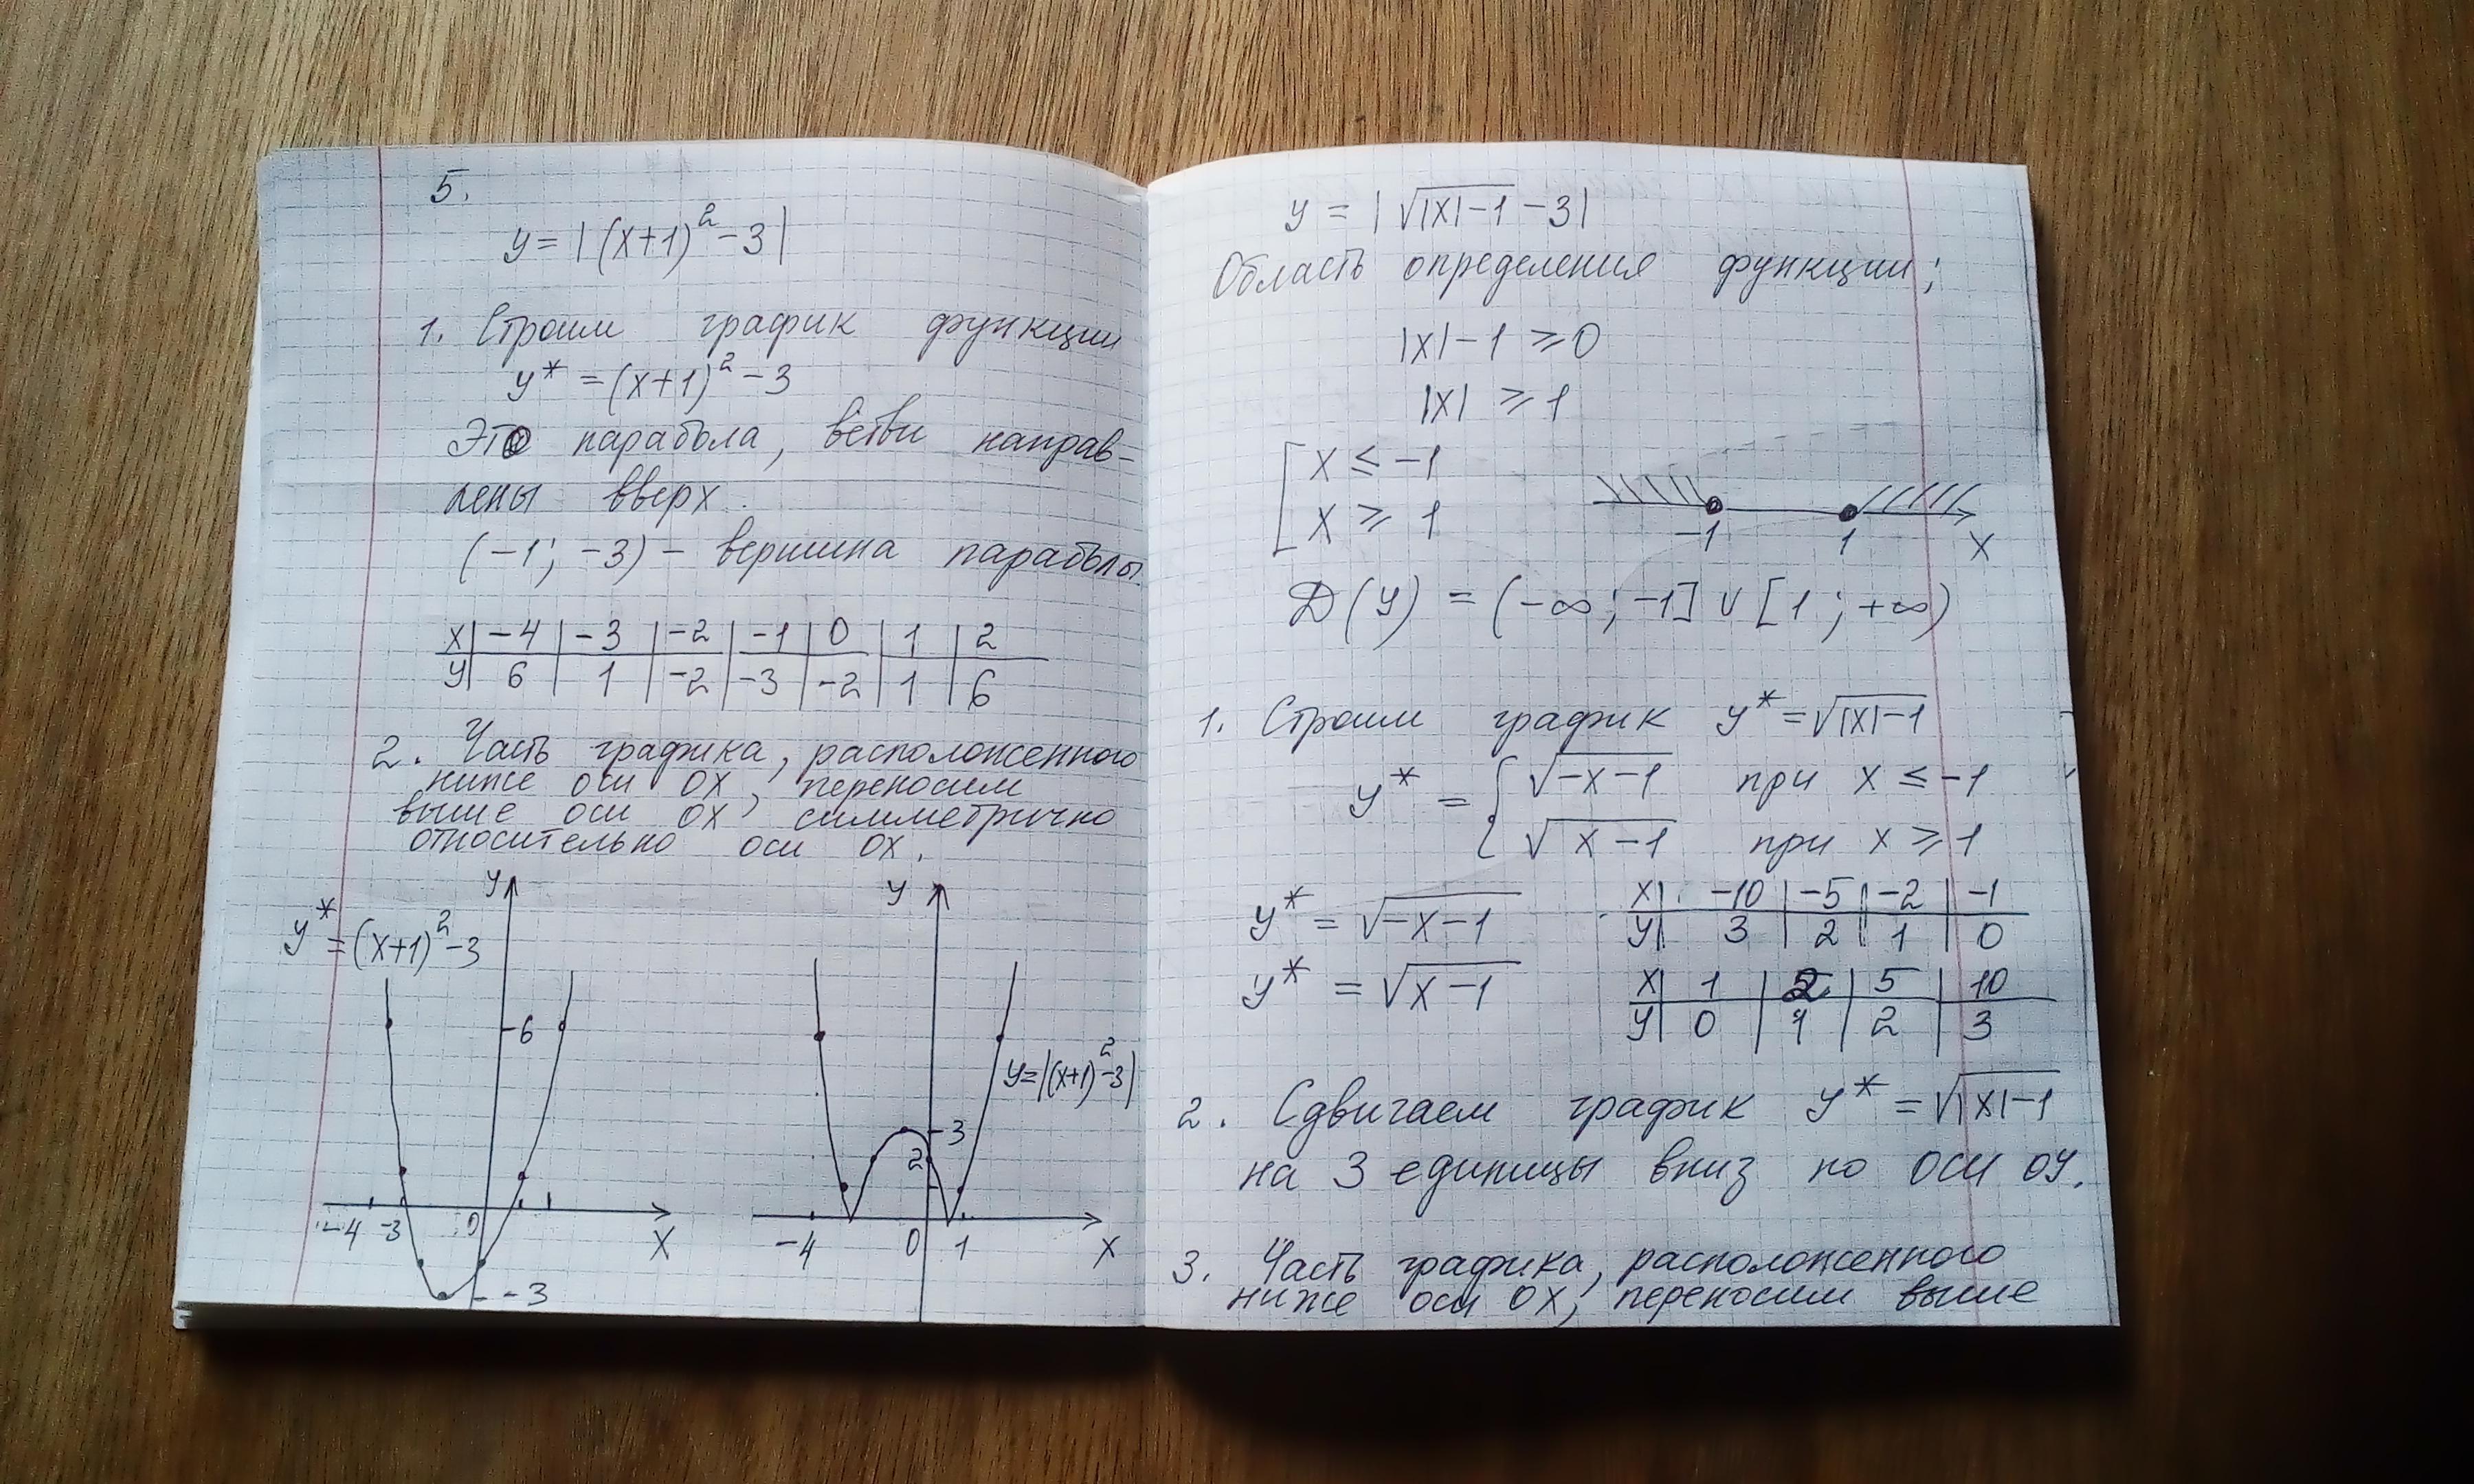 5.
y = |(x+1)² - 3|
1. Строим график функции
y* = (x+1)² - 3
Это парабола, ветви направ-
лены вверх.
(-1; -3) - вершина параболы.
x | -4 | -3 | -2 | -1 | 0 | 1 | 2
y | 6 | 1 | -2 | -3 | -2 | 1 | 6
2. Часть графика, расположенного
ниже оси OX, переносим
выше оси OX, симметрично
относительно оси OX.
y* = (x+1)² - 3
y
6
-4 -3 0 x
-3
y
y = |(x+1)² - 3|
3
2
-4 0 1 x
y = |√|x|-1 - 3|
Область определения функции;
|x| - 1 ≥ 0
|x| ≥ 1
[ x ≤ -1
x ≥ 1
-1 1 x
D(y) = (-∞; -1] ∪ [1; +∞)
1. Строим график y* = √|x|-1
y* = { √-x-1 при x ≤ -1
√x-1 при x ≥ 1
y* = √-x-1
x | -10 | -5 | -2 | -1
y | 3 | 2 | 1 | 0
y* = √x-1
x | 1 | 2 | 5 | 10
y | 0 | 1 | 2 | 3
2. Сдвигаем график y* = √|x|-1
на 3 единицы вниз по оси OY.
3. Часть графика, расположенного
ниже оси OX, переносим выше